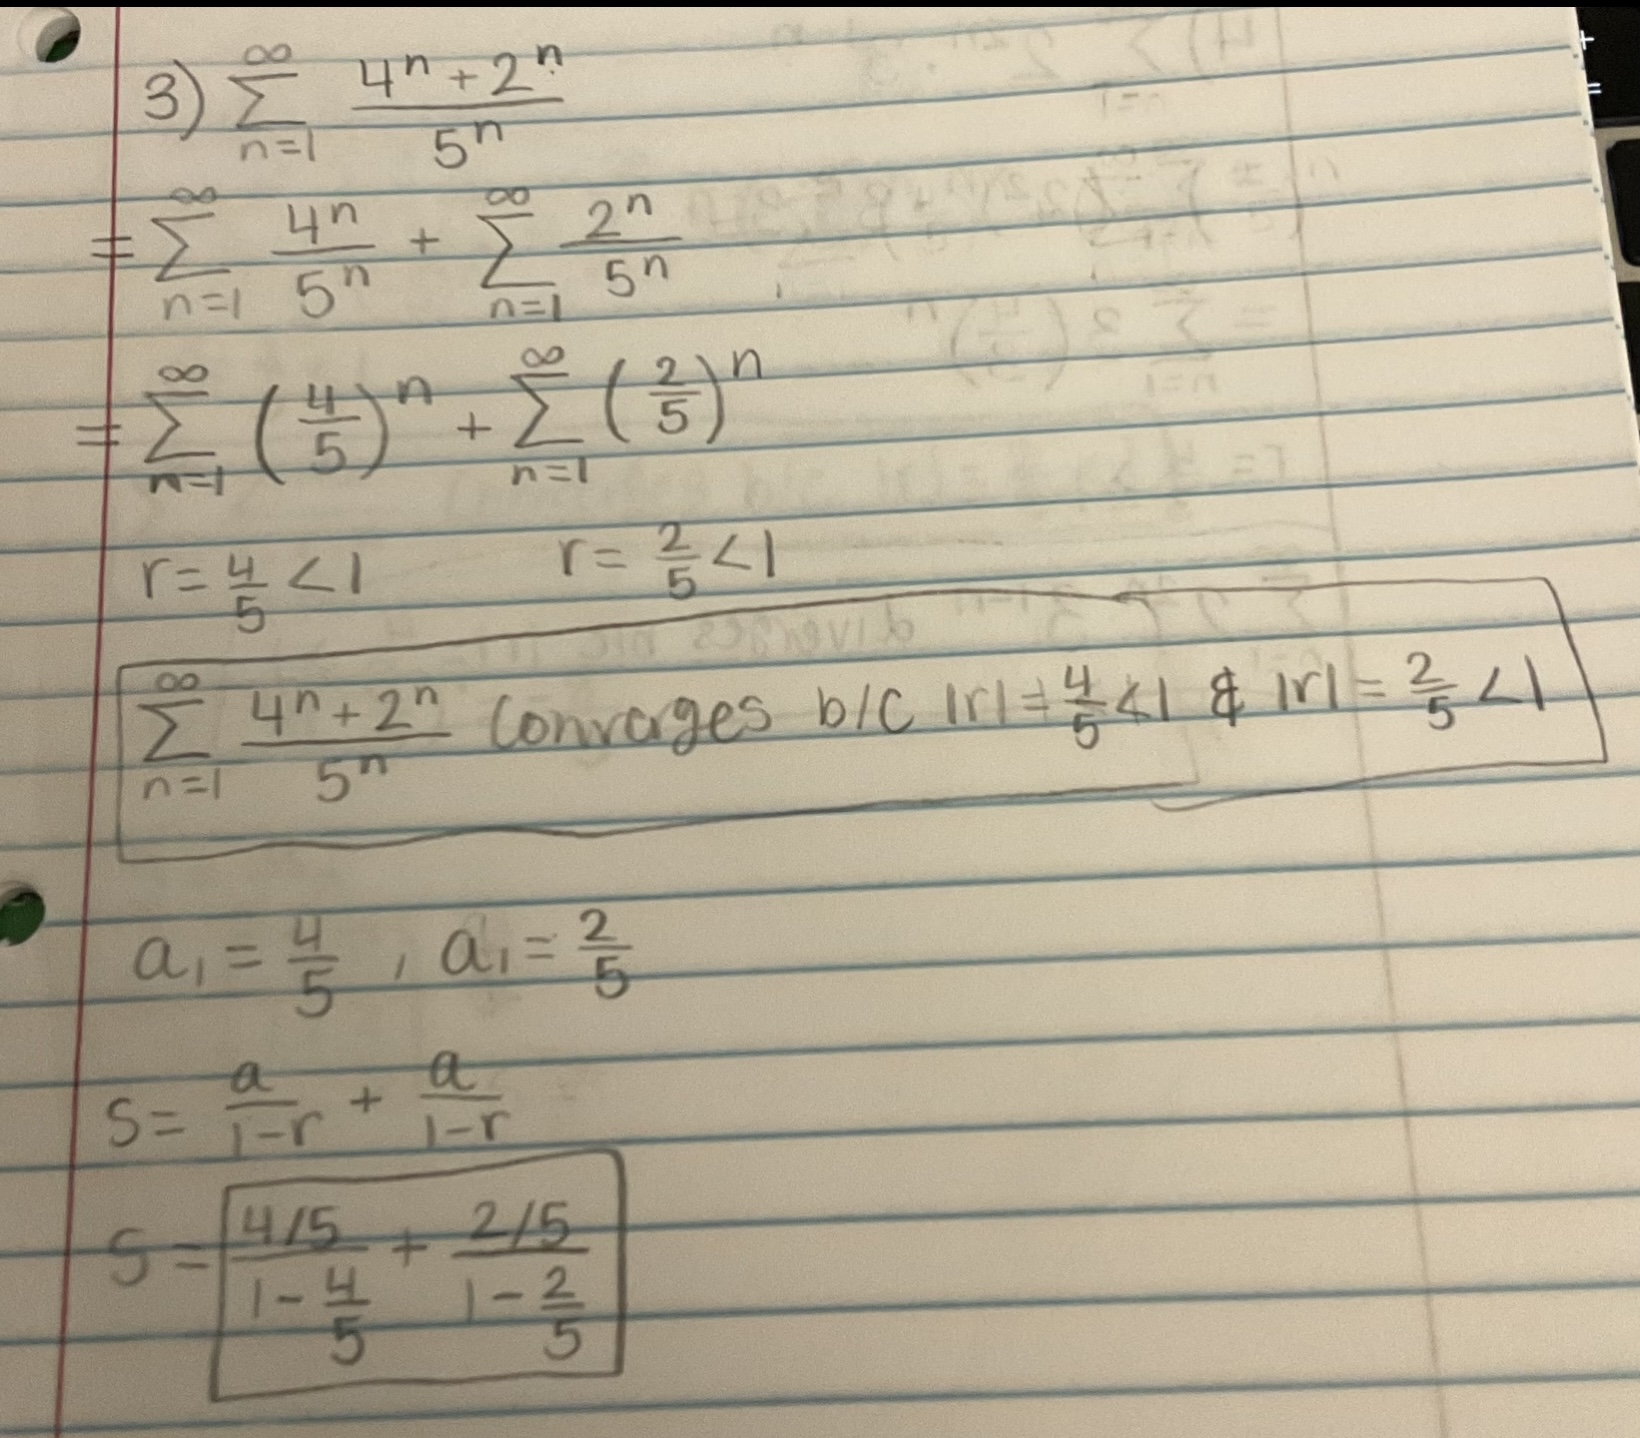 3) ∑_{n=1}^{∞} (4^n + 2^n)/5^n
= ∑_{n=1}^{∞} 4^n/5^n + ∑_{n=1}^{∞} 2^n/5^n
= ∑_{n=1}^{∞} (4/5)^n + ∑_{n=1}^{∞} (2/5)^n
r = 4/5 < 1 r = 2/5 < 1
∑_{n=1}^{∞} (4^n + 2^n)/5^n Converges b/c |r| = 4/5 < 1 & |r| = 2/5 < 1
a₁ = 4/5 , a₁ = 2/5
S = a/(1-r) + a/(1-r)
S = (4/5)/(1 - 4/5) + (2/5)/(1 - 2/5)